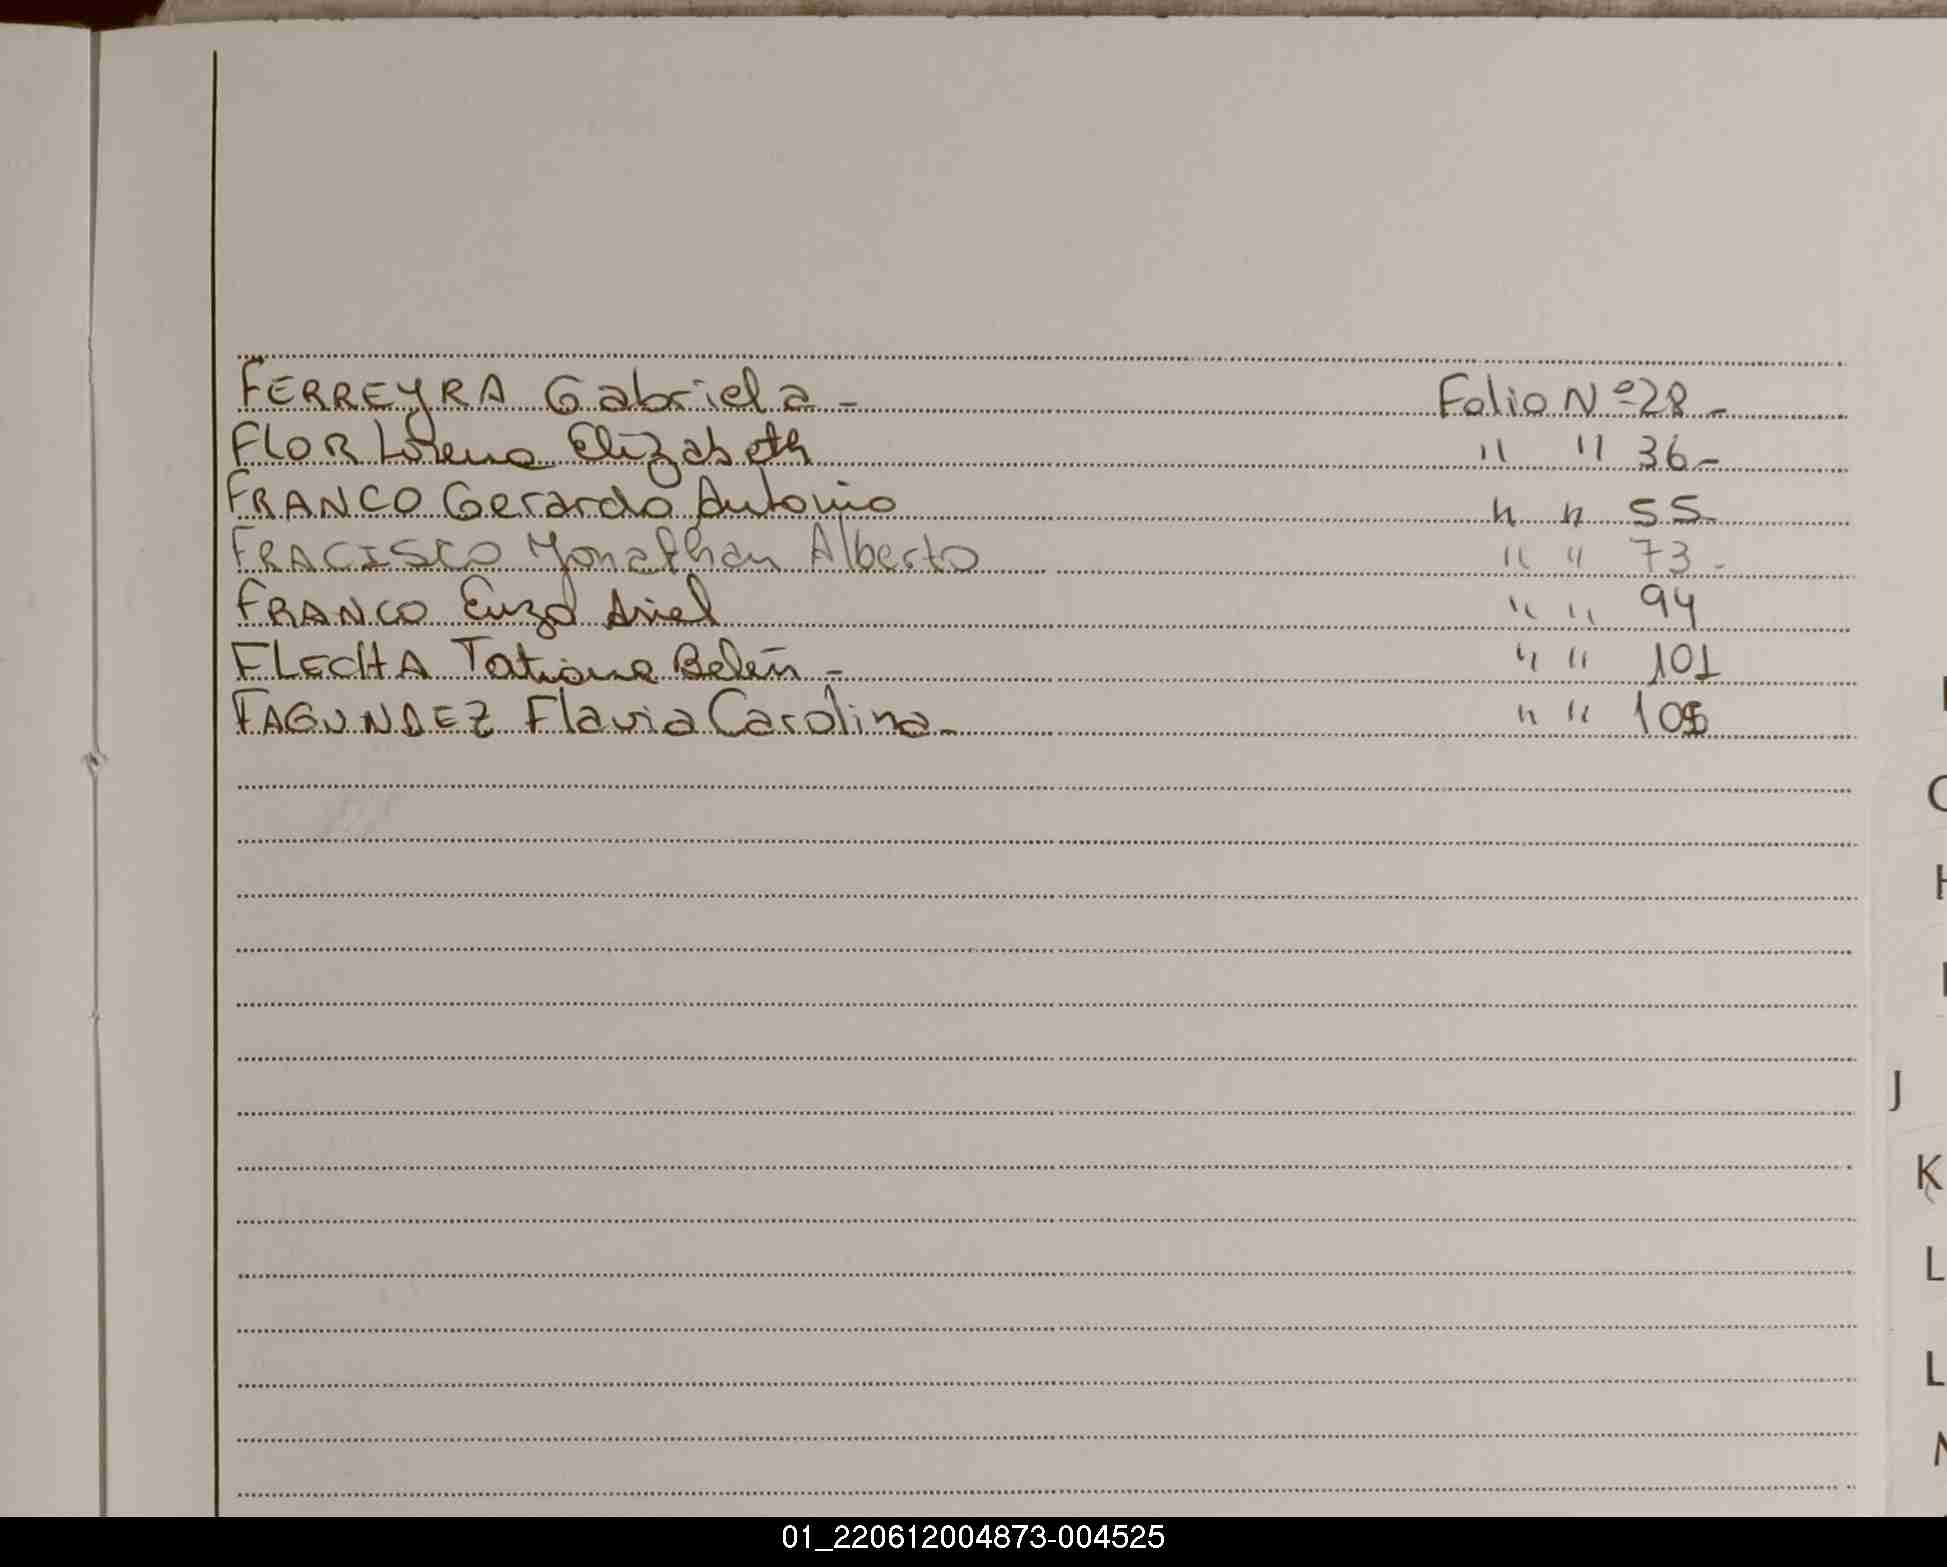 FERREYRA Gabriela - Folio Nº 28 -
FLOR Lorena Elizabeth " " 36 -
FRANCO Gerardo Antonio " " 55
FRACISCO Yonathan Alberto " " 73 -
FRANCO Enzo Ariel " " 94
FLECHA Tatiana Belén - " " 101
FAGUNDEZ Flavia Carolina - " "
J
K
L
L
01_220612004873-004525